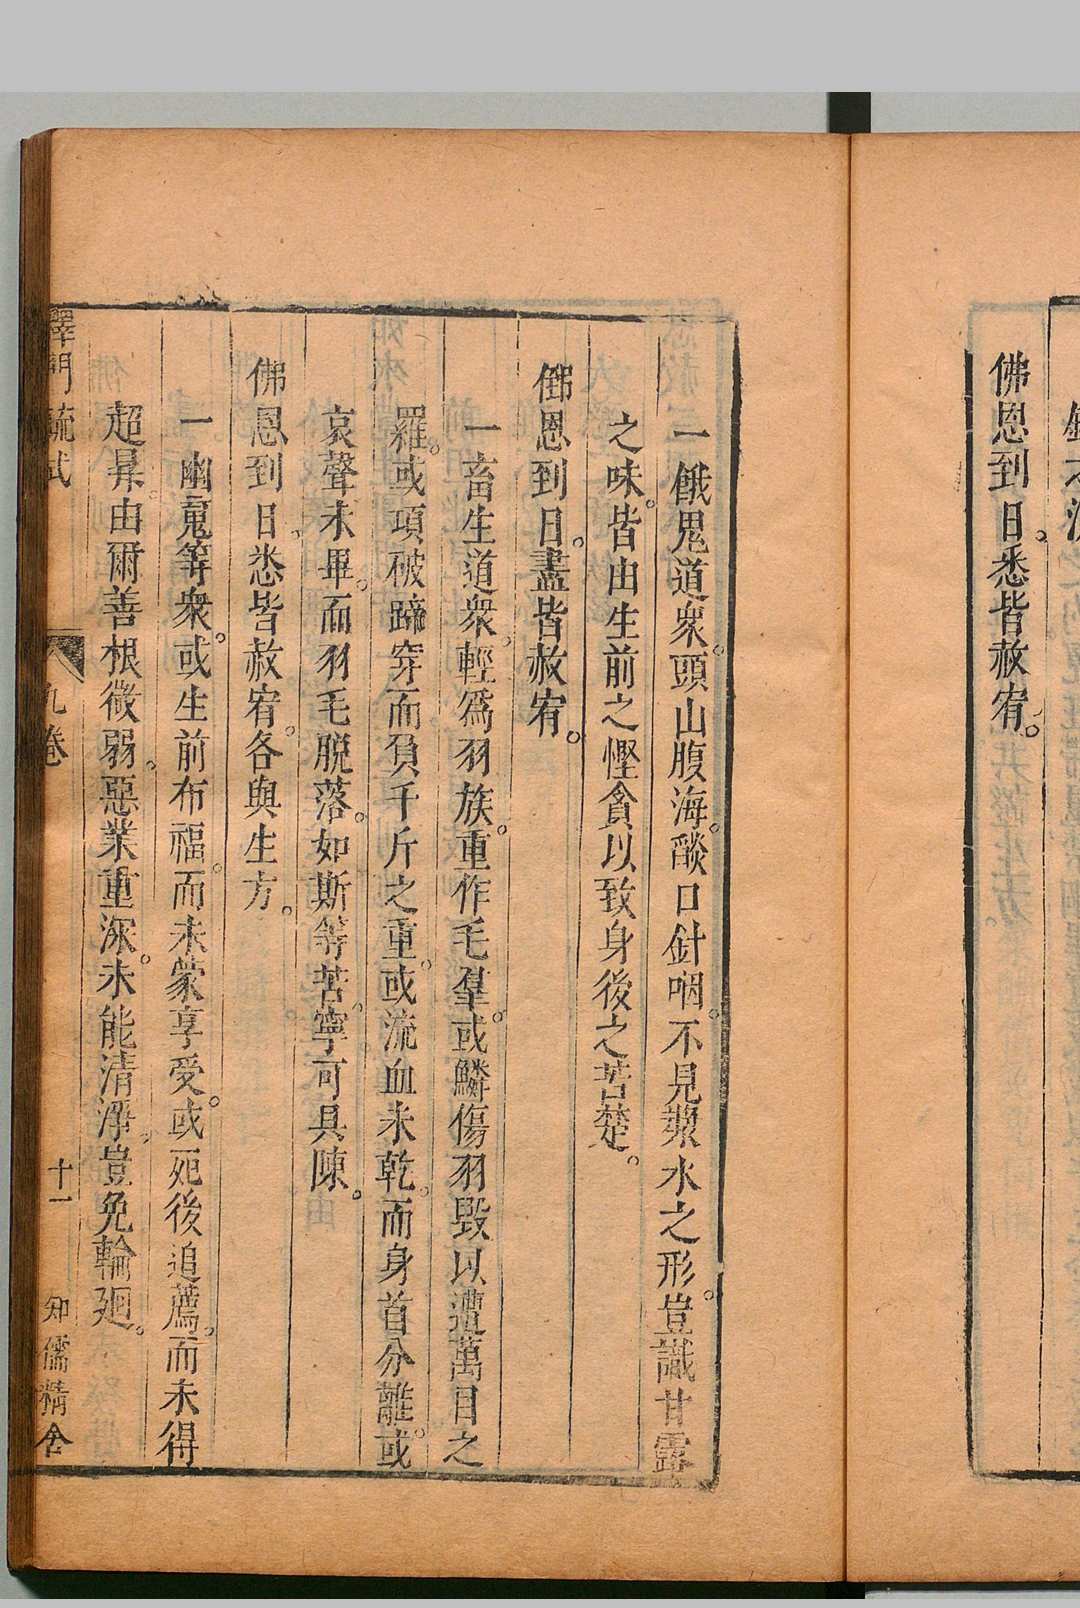 佛恩到日。悉皆赦宥。
一餓鬼道衆。頭山腹海。燄口針咽。不見漿水之形。豈識甘露
之味。皆由生前之慳貪以致身後之苦楚。
佛恩到日。盡皆赦宥。
一畜生道衆。輕爲羽族。重作毛羣。或鱗傷羽毁以遭萬目之
羅。或項破蹄穿而負千斤之重。或流血未乾。而身首分離。或
哀聲未畢。而羽毛脫落。如斯等苦。寧可具陳。
佛恩到日。悉皆赦宥。各與生方。
一幽䰟等衆。或生前布福。而未蒙享受。或死後追薦。而未得
超昇。由爾善根微弱。惡業重深。未能清淨。豈免輪廻。
釋門疏式 九卷 十一 知儒精舍